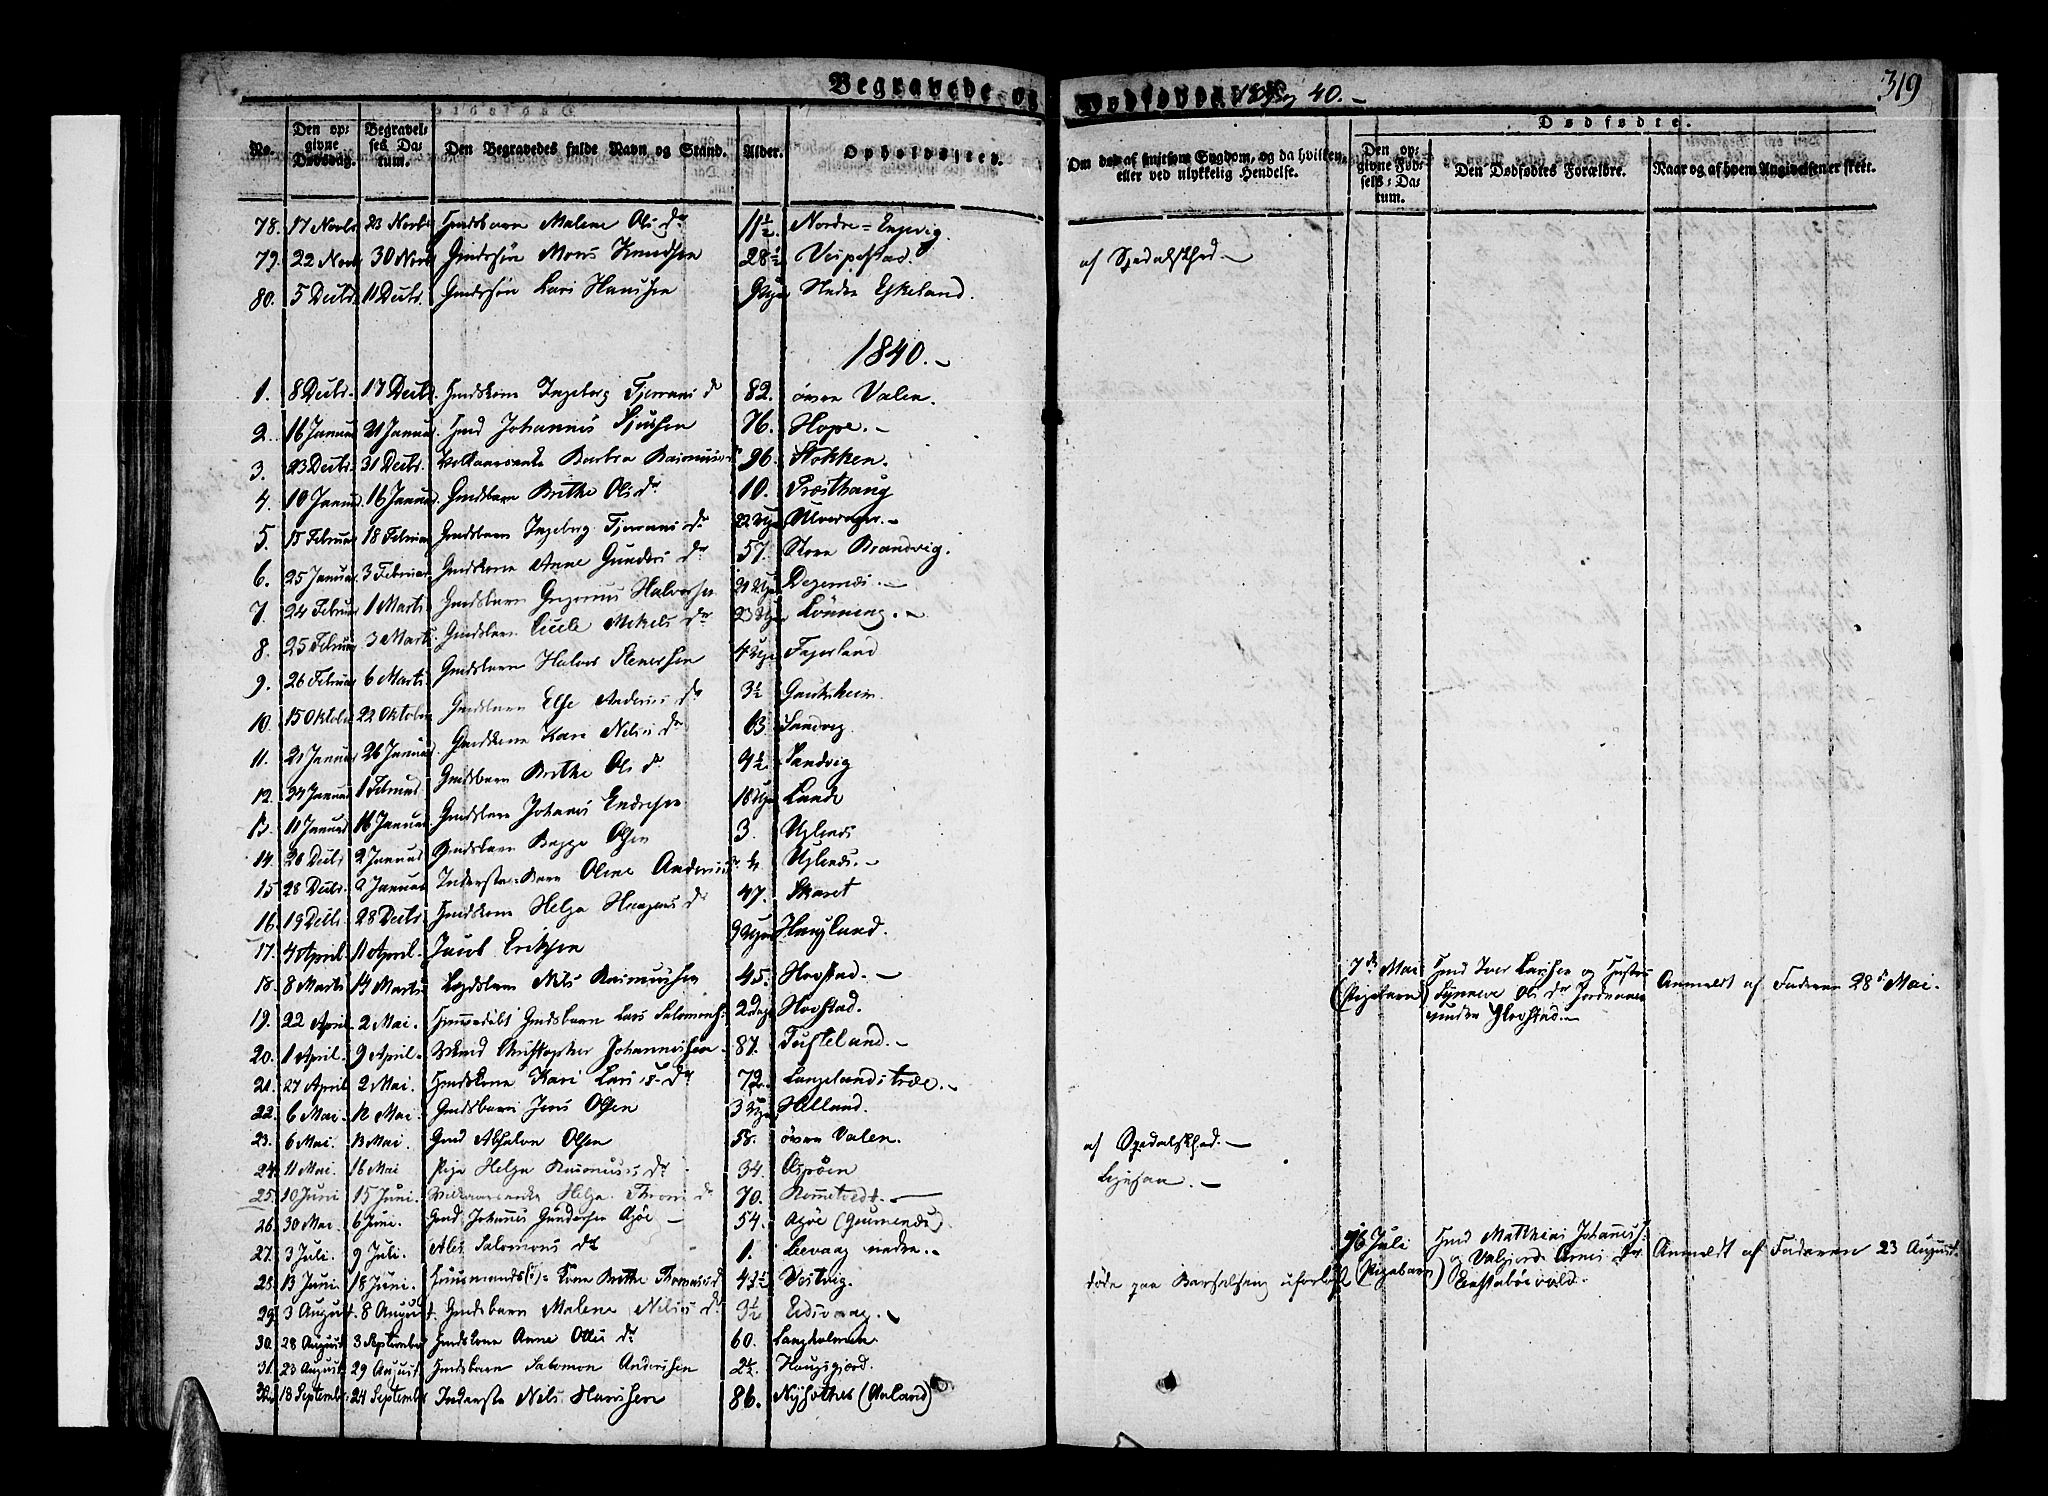 Begravede og Dødfødte 40.
319
No.
Den opgivne Dødsdag.
Begravelses Datum.
Den Begravedes fulde Navn og Stand.
Alder.
Opholdssted.
Om død af smitsom Sygdom, og da hvilken, eller ved ulykkelig Hendelse.
Dødfødte.
Den opgivne Fødsels-Datum.
Den Dødfødtes Forældre.
Naar og af hvem Angivelsen er skeet.
78. 17 Novbr 23 Novbr Gmdsbarn Malene Ols Dr 11½. Nordre-Engevig.
79. 22 Novb 30 Novb Gmdssøn Mons Knudsen 28½ Vespestad. af Spedalskhed.
80. 5 Decbr. 11 Decbr. Gmdssøn Lars Hansen 9 Uger Nedre Eskeland.
1840.
1. 8 Decbr. 17 Decbr. Gmdskone Ingeborg Fjerrans d 82. øvre Valen.
2. 16 Januar 21 Januar. Gmd Johannes Sjursen 76. Hope.
3. 23 Decbr. 31 Decbr. Barbra Rasmus 96. Stokken.
4. 10 Januar 16 Januar. Gmdsbarn Brithe Ols Dr 10. Præsthaug
5. 15 Februar 18 Februar Gmdsbarn Ingeborg Fjerrans Dr 22 Uger Ulverager.
6. 25 Januar 3 Februar. Gmdskone Anne Gunders Dr 57. Store Brandvig.
7. 24 Februar 1 Marts. Gmdsbarn Gregorius Halvorsen 21 Uger Degernæs.
8. 25 Februar 3 Marts Gmdsbarn Cicele Mikels Dr 23 Uger Lønning.
9. 26 Februar 6 Marts. Gmdsbarn Halvor Stenersen 4 Uger Fagerland
10. 15 Oktober 22 Oktober Gmdsbarn Else Anders Dr 3½ Gautsheim.
11. 21 Januar 26 Januar. Gmdskone Kari Nels Dr 63 Sandvig
12. 24 Januar 1 Februar Gmdsbarn Brithe Ols Dr 9½ Sandvig
13. 11 Januar 16 Januar. Gmdsbarn Johannes Endresen 18 Uger Lande
14. 26 Decbr 2 Januar Gmdsbarn Olsen 3. Uglenæs
15 28 Decbr. 2 Januar Inderste-Barn Olene Anders Dr Uglenæs.
16. 19 Decbr. 28 Decbr. Gmdskone Helga Haagens Dr 47. Skaret
17. 4 April. 11 April. Jacob Eriksen 9 Uger Haugland.
18. 8 Marts 14 Marts Lægdslem Nils Rasmussen 45. Hovstad.
7de Mai (Pigebarn) Gmd Iver Larsen og Hustru Synneve Ols Dr Hovstad. Anmeldt af Faderen 28de Mai.
19. 22 April. 2 Mai. Hjemmedøbt Gmdsbarn Lars Salomons. 2 Dage Hovstad.
20. 1 April. 9 April. Christopher Johannessen 87. Tufteland.
21. 27 April 2 Mai. Gmdskone Kari Lars Dr 72. Langelandstræe.
22. 6 Mai. 12 Mai. Gmdsbarn Jens Olsen 3 Uger Helland.
23. 6 Mai. 13 Mai. Gmd Absalon Olsen 58. øvre Valen. af Spedalskhed.
24. 11 Mai. 16 Mai Pige Helga Rasmus Dr 34. Ospøen Ligesaa.
25. 10 Juni 15 Juni. Helga Dr 70. Rommetvedt.
26. 30 Mai. 6 Juni. Gmd Johannes Gundersen Agøe 54. Agøe
27. 3 Juli. 9 Juli. Ales Salomons Dr 1. Leevaag nedre.
16 Juli (Pigebarn) Gmd Matthias Johannes. og Valgjerd Arnes Dr. Anmeldt af Faderen 23 August.
28. 13 Juni 18 Juni. Huusmands(?)-Kone Brithe Thomas d 43½ Vestvig. døde paa Barselseng uforløst
29. 3 August. 8 August. Gmdsbarn Malene Nels Dr 3½ Eidsvaag.
30. 28 August. 3 September Gmdskone Anne Ottes Dr 60. Langholmen.
31. 23 August. 29 August. Gmdsbarn Salomon Andersen 2½. Haugsgjerd.
32. 18 September. 24 September Inderste Nels Hansen 86. (Aaland)